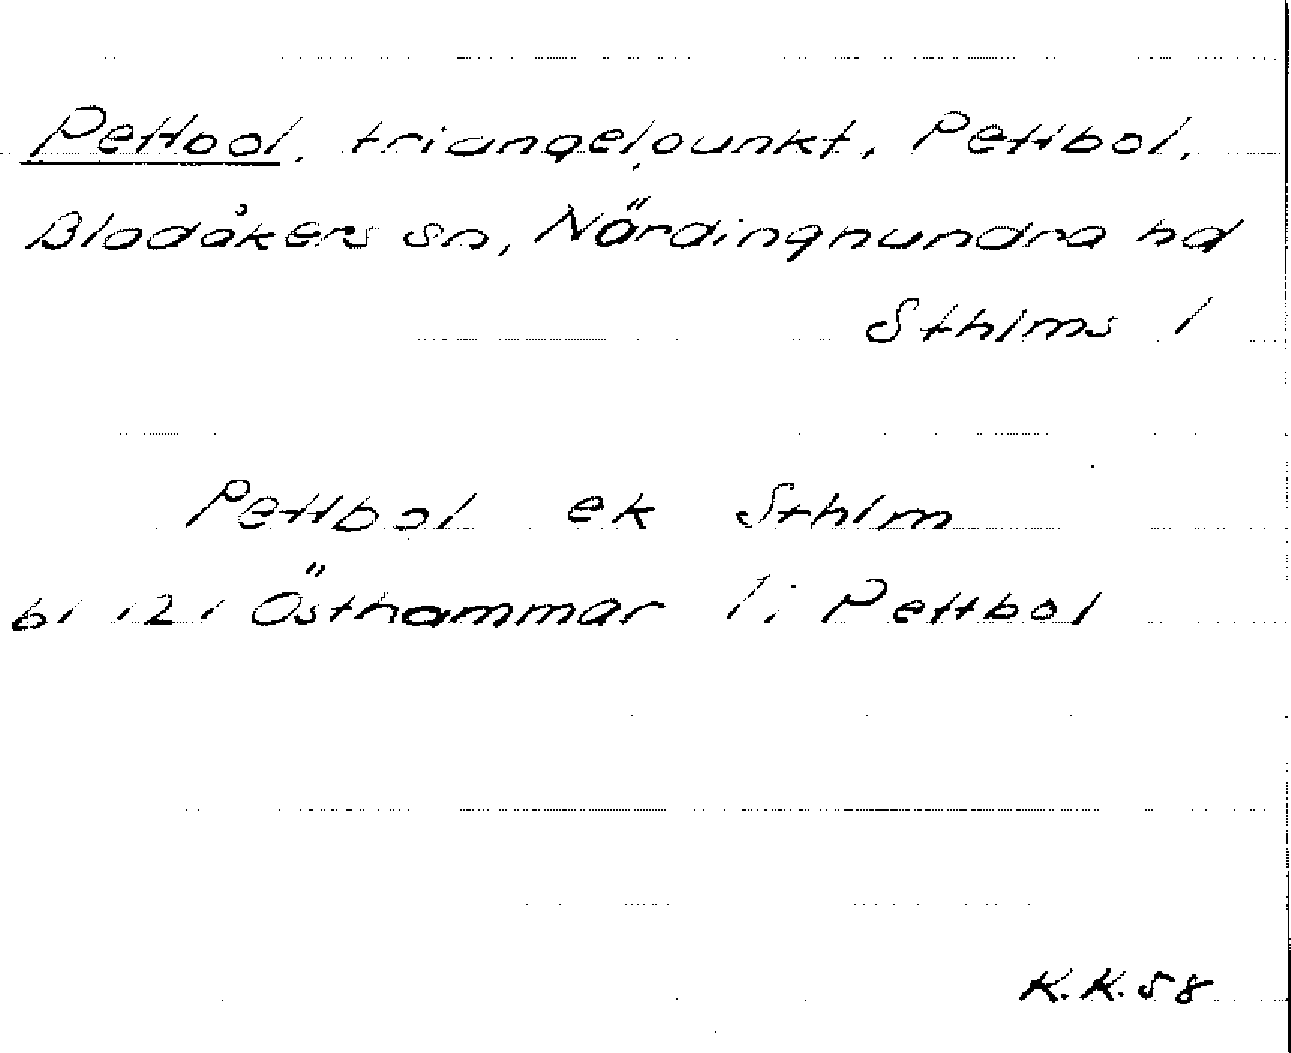 Pettbol, triangelpunkt, Pettbol,
Bladåkers sn, Närdinghundra hd
Sthlms l
Pettbol ek Sthlm
bl 121 Östhammar l; Pettbol
K.K. 58